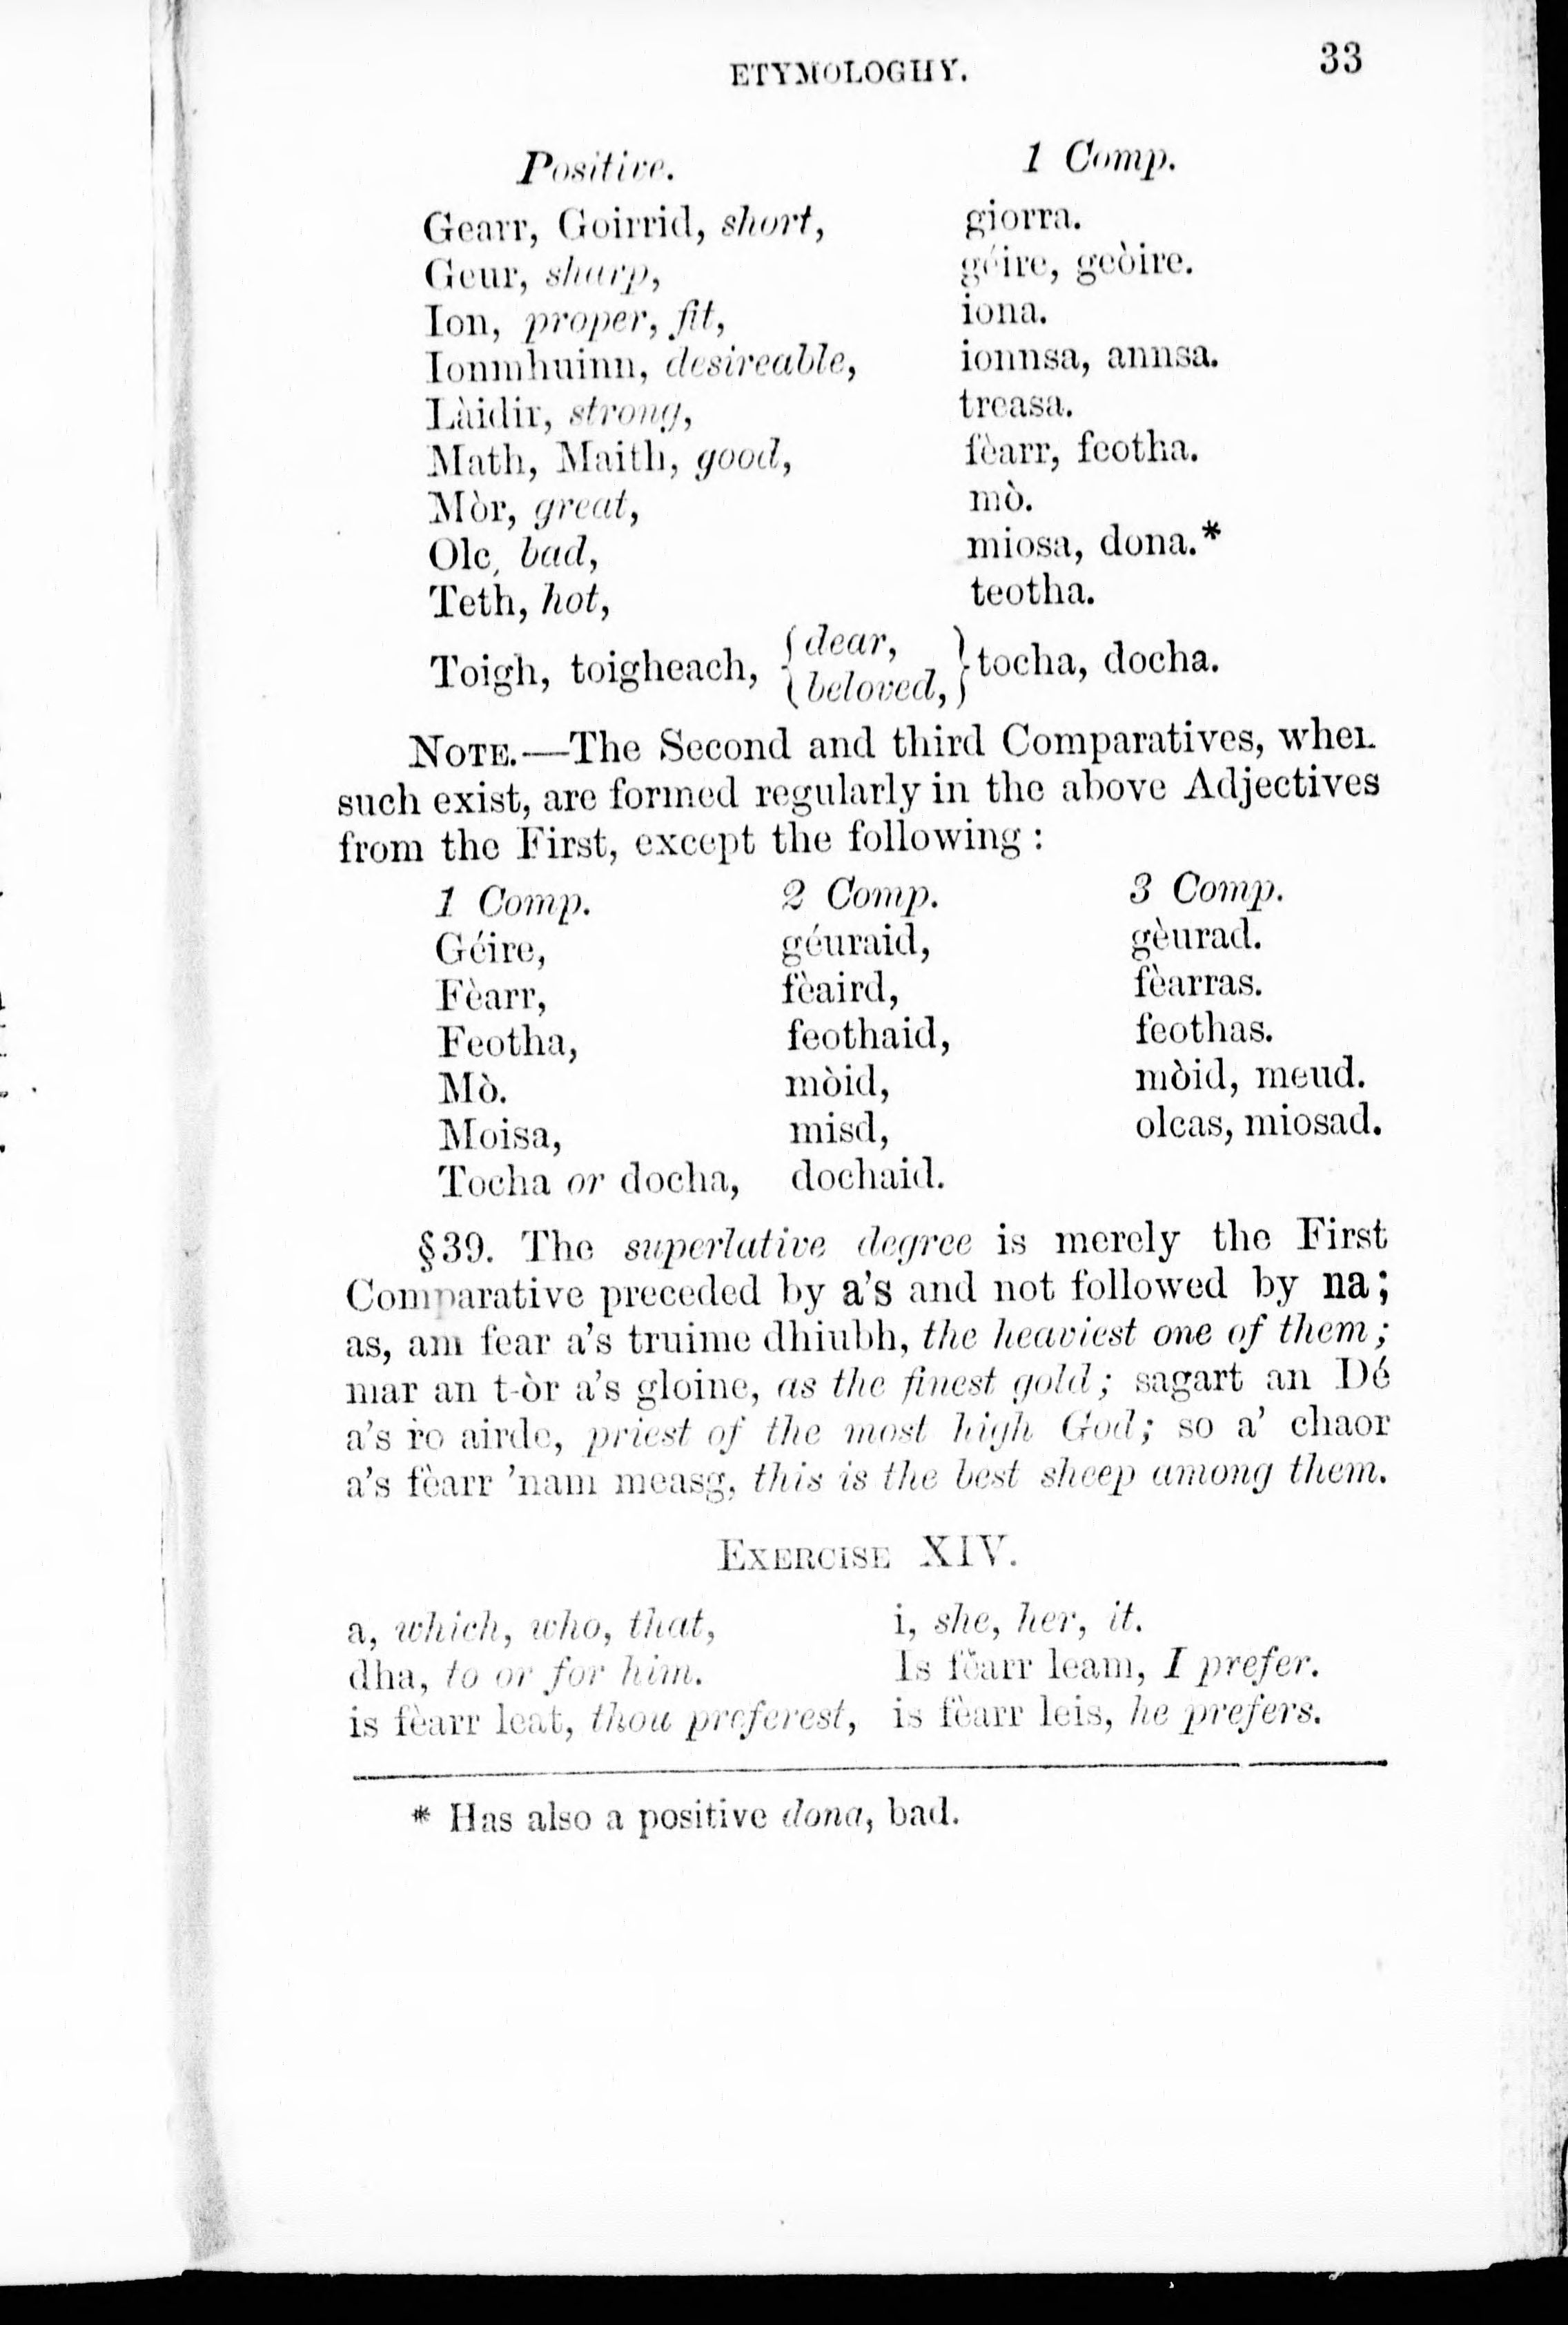 ETYMOLOGHY. 33
Positive. 1 Comp.
Gearr, Goirrid, short, giorra.
Geur, sharp, géire, geòire.
Ion, proper, fit, iona.
Ionmhuinn, desireable, ionnsa, annsa.
Làidir, strong, treasa.
Math, Maith, good, fèarr, feotha.
Mòr, great, mò.
Olc, bad, miosa, dona.*
Teth, hot, teotha.
Toigh, toigheach, { dear, beloved, } tocha, docha.
NOTE.—The Second and third Comparatives, when
such exist, are formed regularly in the above Adjectives
from the First, except the following :
1 Comp. 2 Comp. 3 Comp.
Géire, géuraid, gèurad.
Fèarr, fèaird, fèarras.
Feotha, feothaid, feothas.
Mò. mòid, mòid, meud.
Moisa, misd, olcas, miosad.
Tocha or docha, dochaid.
§39. The superlative degree is merely the First
Comparative preceded by a's and not followed by na;
as, am fear a's truime dhiubh, the heaviest one of them;
mar an t-òr a's gloine, as the finest gold; sagart an Dé
a's ro airde, priest of the most high God; so a' chaor
a's fèarr 'nam measg, this is the best sheep among them.
EXERCISE XIV.
a, which, who, that, i, she, her, it.
dha, to or for him. Is fèarr leam, I prefer.
is fèarr leat, thou preferest, is fèarr leis, he prefers.
* Has also a positive dona, bad.